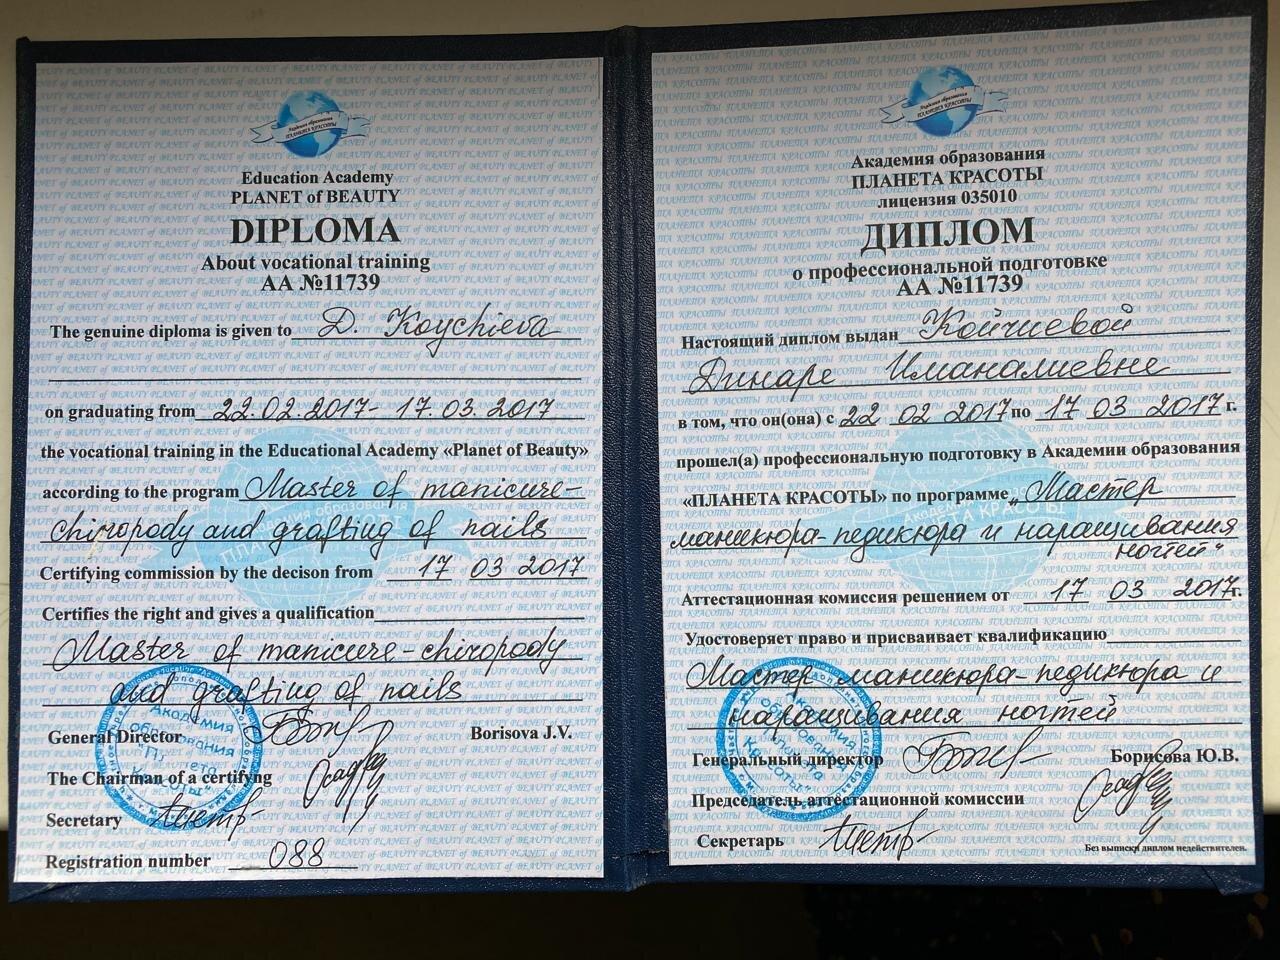 Академия образования
ПЛАНЕТА КРАСОТЫ
Education Academy
PLANET of BEAUTY
DIPLOMA
About vocational training
АА №11739
The genuine diploma is given to D. Koychieva
on graduating from 22.02.2017- 17.03.2017
the vocational training in the Educational Academy «Planet of Beauty»
according to the program Master of manicure-
chiropody and grafting of nails
Certifying commission by the decison from 17 03 2017
Certifies the right and gives a qualification
Master of manicure-chiropody
and grafting of nails
General Director Borisova J.V.
The Chairman of a certifyng
Secretary
Registration number 088
Академия образования
ПЛАНЕТА КРАСОТЫ
Академия образования
ПЛАНЕТА КРАСОТЫ
лицензия 035010
ДИПЛОМ
о профессиональной подготовке
АА №11739
Настоящий диплом выдан Койчиевой
Динаре Иманалиевне
в том, что он(она) с 22 02 2017 по 17 03 2017 г.
прошел(а) профессиональную подготовку в Академии образования
«ПЛАНЕТА КРАСОТЫ» по программе „Мастер
маникюра-педикюра и наращивания
ногтей"
Аттестационная комиссия решением от 17 03 2017г.
Удостоверяет право и присваивает квалификацию
Мастер маникюра-педикюра и
наращивания ногтей
Генеральный директор Борисова Ю.В.
Председатель аттестационной комиссии
Секретарь
Без выписки диплом недействителен.